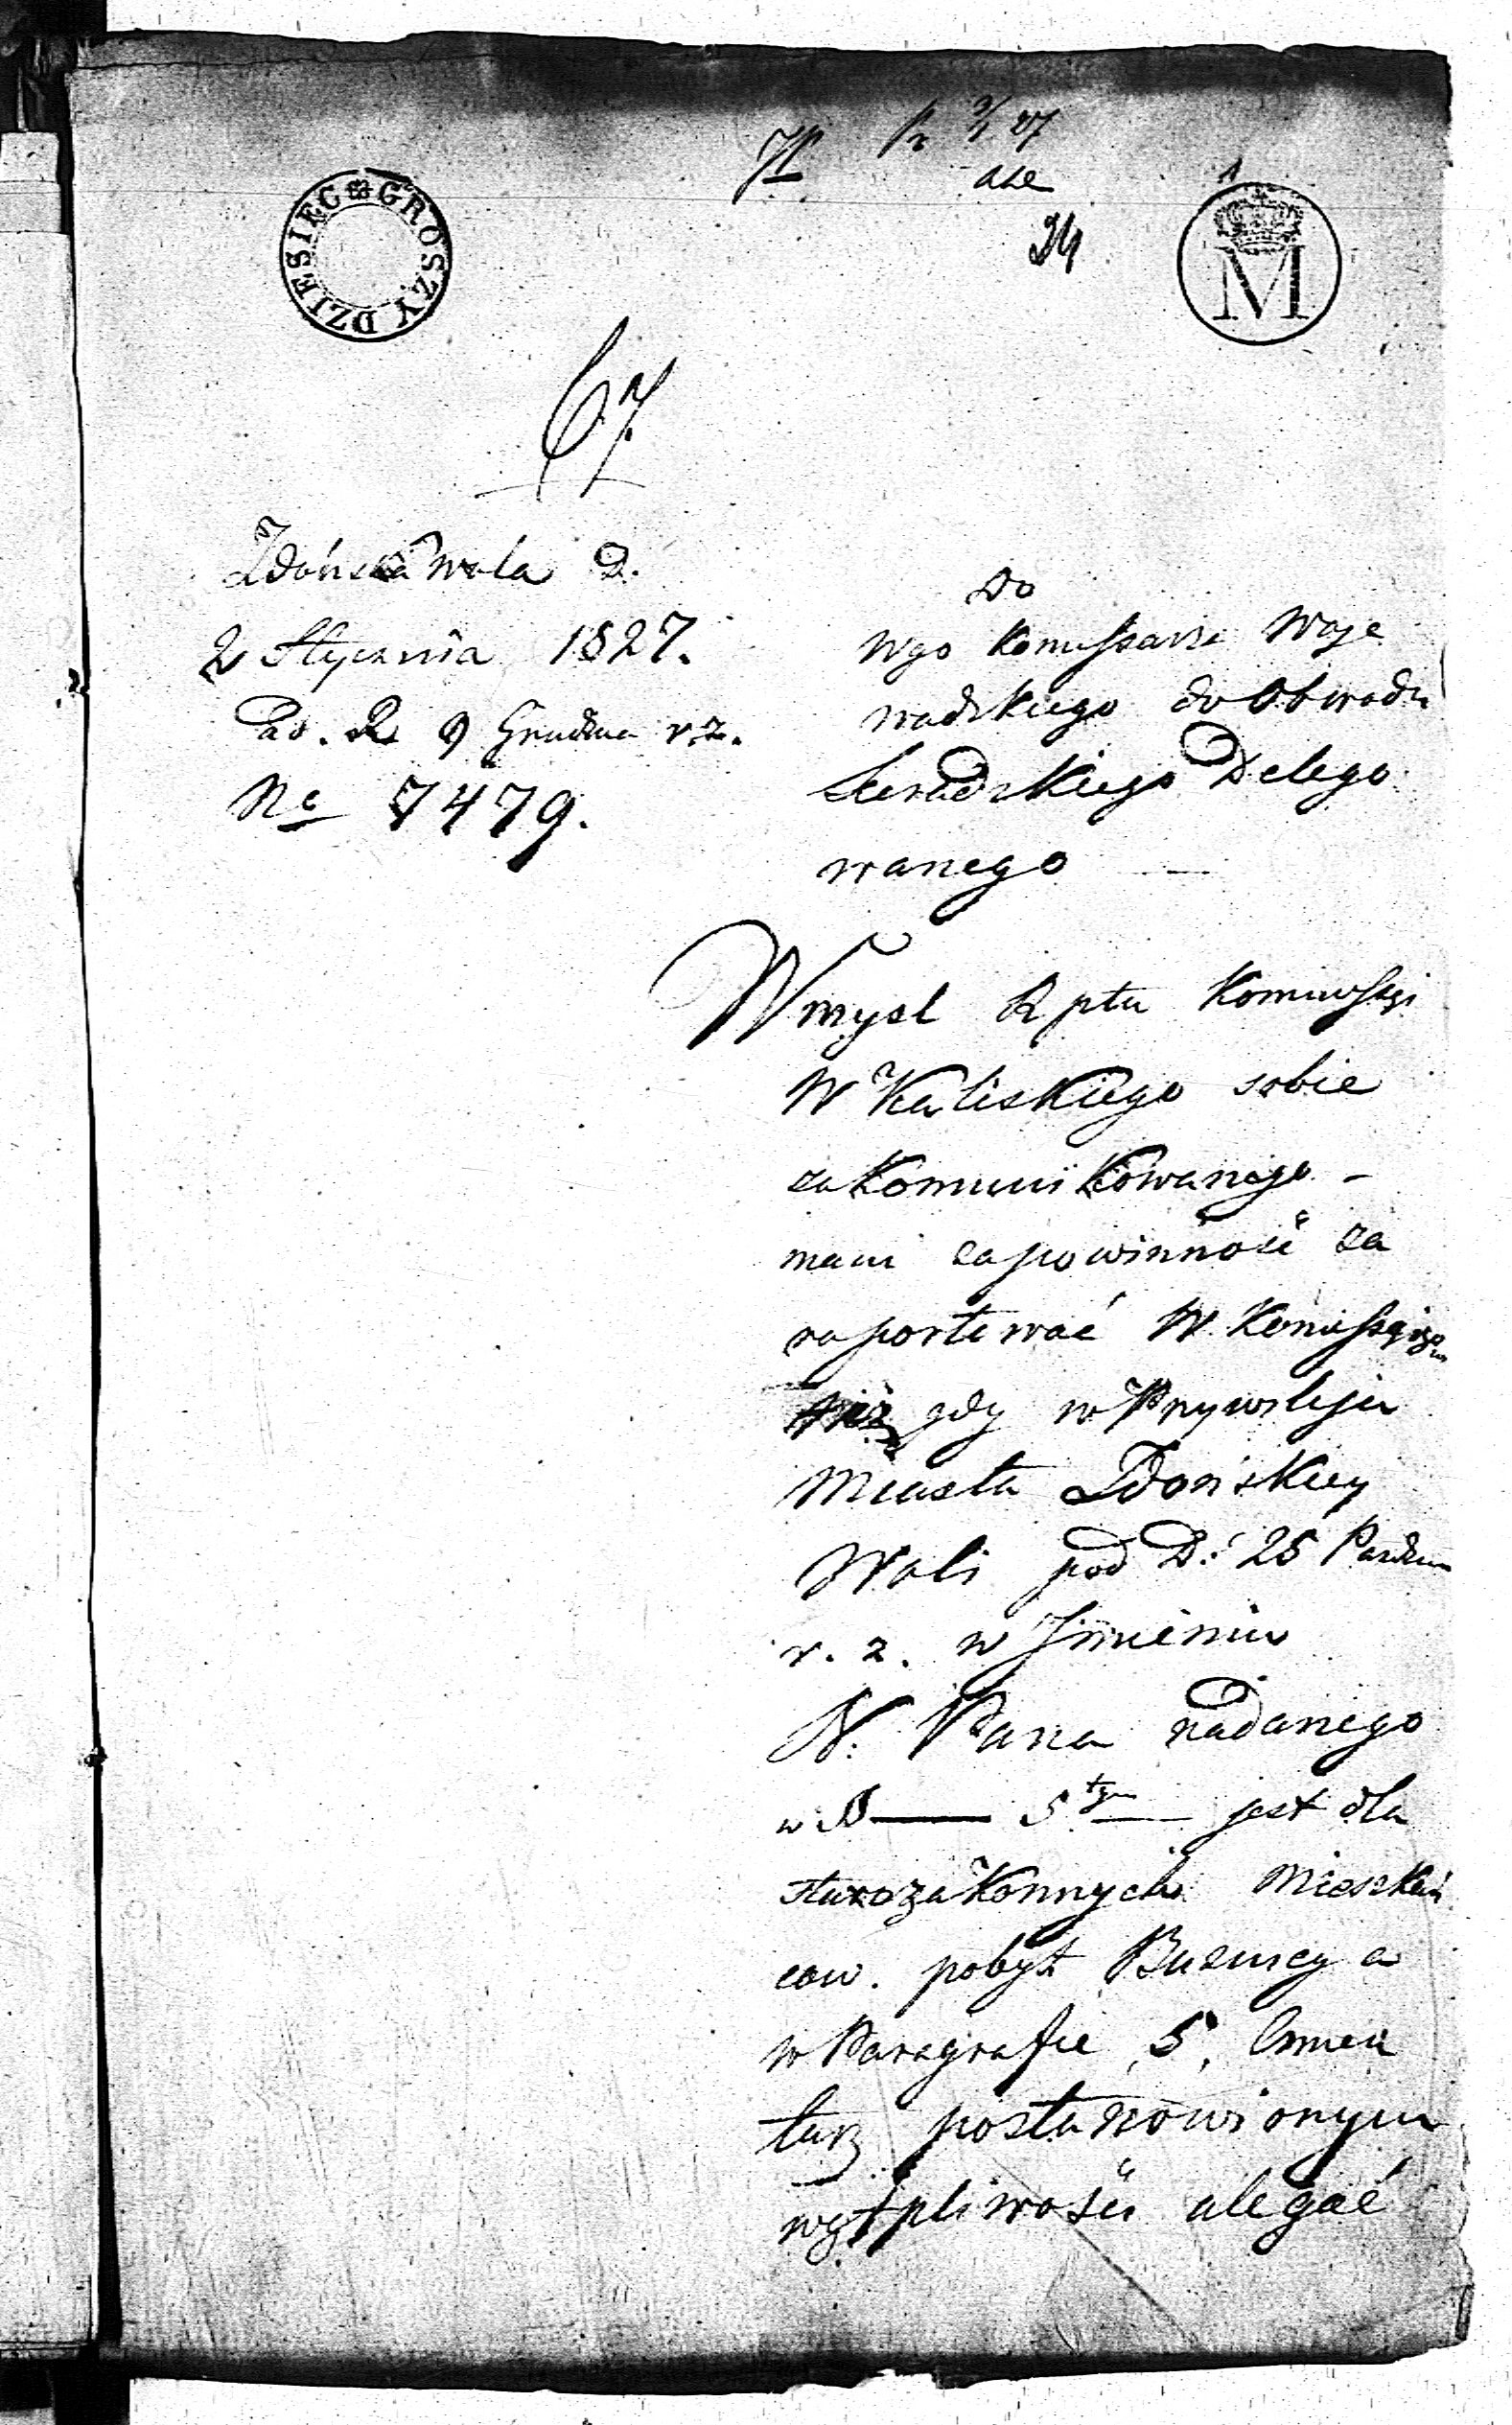 Pr 9/1 27
24
DZIESIĘĆ GROSZY
M
67
Zdońska Wola D.
2 Stycznia 1827.
Pad. R 9 Grudnia r. z.
No 7479.
Do
Wgo Komissarza Woje
wodzkiego do Obwodu
Sieradzkiego Delego
wanego
W mysl Rptu Komissyi
W Kaliskiego sobie
zakomunikowanego -
mam za powinność za
raportować W. Komissarzo
gdy w Przywileju
Miasta Zdońskiey
Woli pod D: 25 Pazdzer
r. z. w Jmieniu
N. Pana nadanego
w § 5tym jest dla
starozakonnych Mieszkań
cow. pobyt a
w Paragrafie 5, Cmen
tarz postanowionym
wątpliwości ulegać